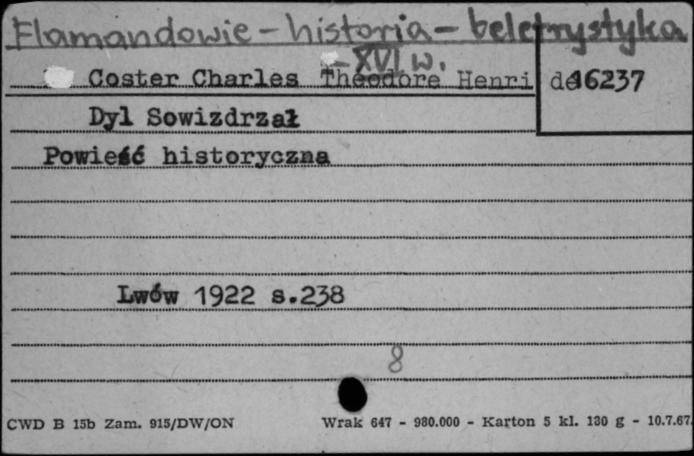 Flamandowie - historia - beletrystyka
- XVI w.
Coster Charles Théodore Henri de 16237
Dyl Sowizdrzał
Powieść historyczna
Lwów 1922 s.238
8
CWD B 15b Zam. 915/DW/ON Wrak 647 - 980.000 - Karton 5 kl. 180 g - 10.7.67.